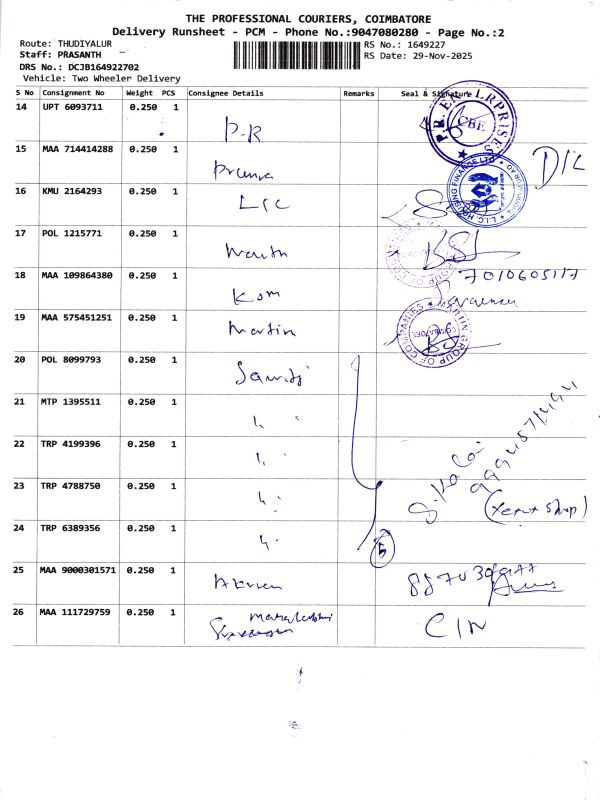 THE PROFESSIONAL COURIERS, COIMBATORE
Delivery Runsheet - PCM - Phone No.:9047080280 - Page No.:2
Route: THUDIYALUR RS No.: 1649227
Staff: PRASANTH RS Date: 29-Nov-2025
DRS No.: DCJB164922702
Vehicle: Two Wheeler Delivery
S No Consignment No Weight PCS Consignee Details Remarks Seal & Signature
14 UPT 6093711 0.250 1 P.R P.R. ENTERPRISES CBE
15 MAA 714414288 0.250 1 D/C
16 KMU 2164293 0.250 1 LIC L.I.C. HOUSING FINANCE LTD
17 POL 1215771 0.250 1 GROUP OF COMPANIES
18 MAA 109864380 0.250 1 Kom 7010605117
19 MAA 575451251 0.250 1 Martin MARTIN GROUP OF COMPANIES COIMBATORE
20 POL 8099793 0.250 1
21 MTP 1395511 0.250 1
22 TRP 4199396 0.250 1
23 TRP 4788750 0.250 1 (Xerox shop)
24 TRP 6389356 0.250 1 5
25 MAA 9000301571 0.250 1
26 MAA 111729759 0.250 1